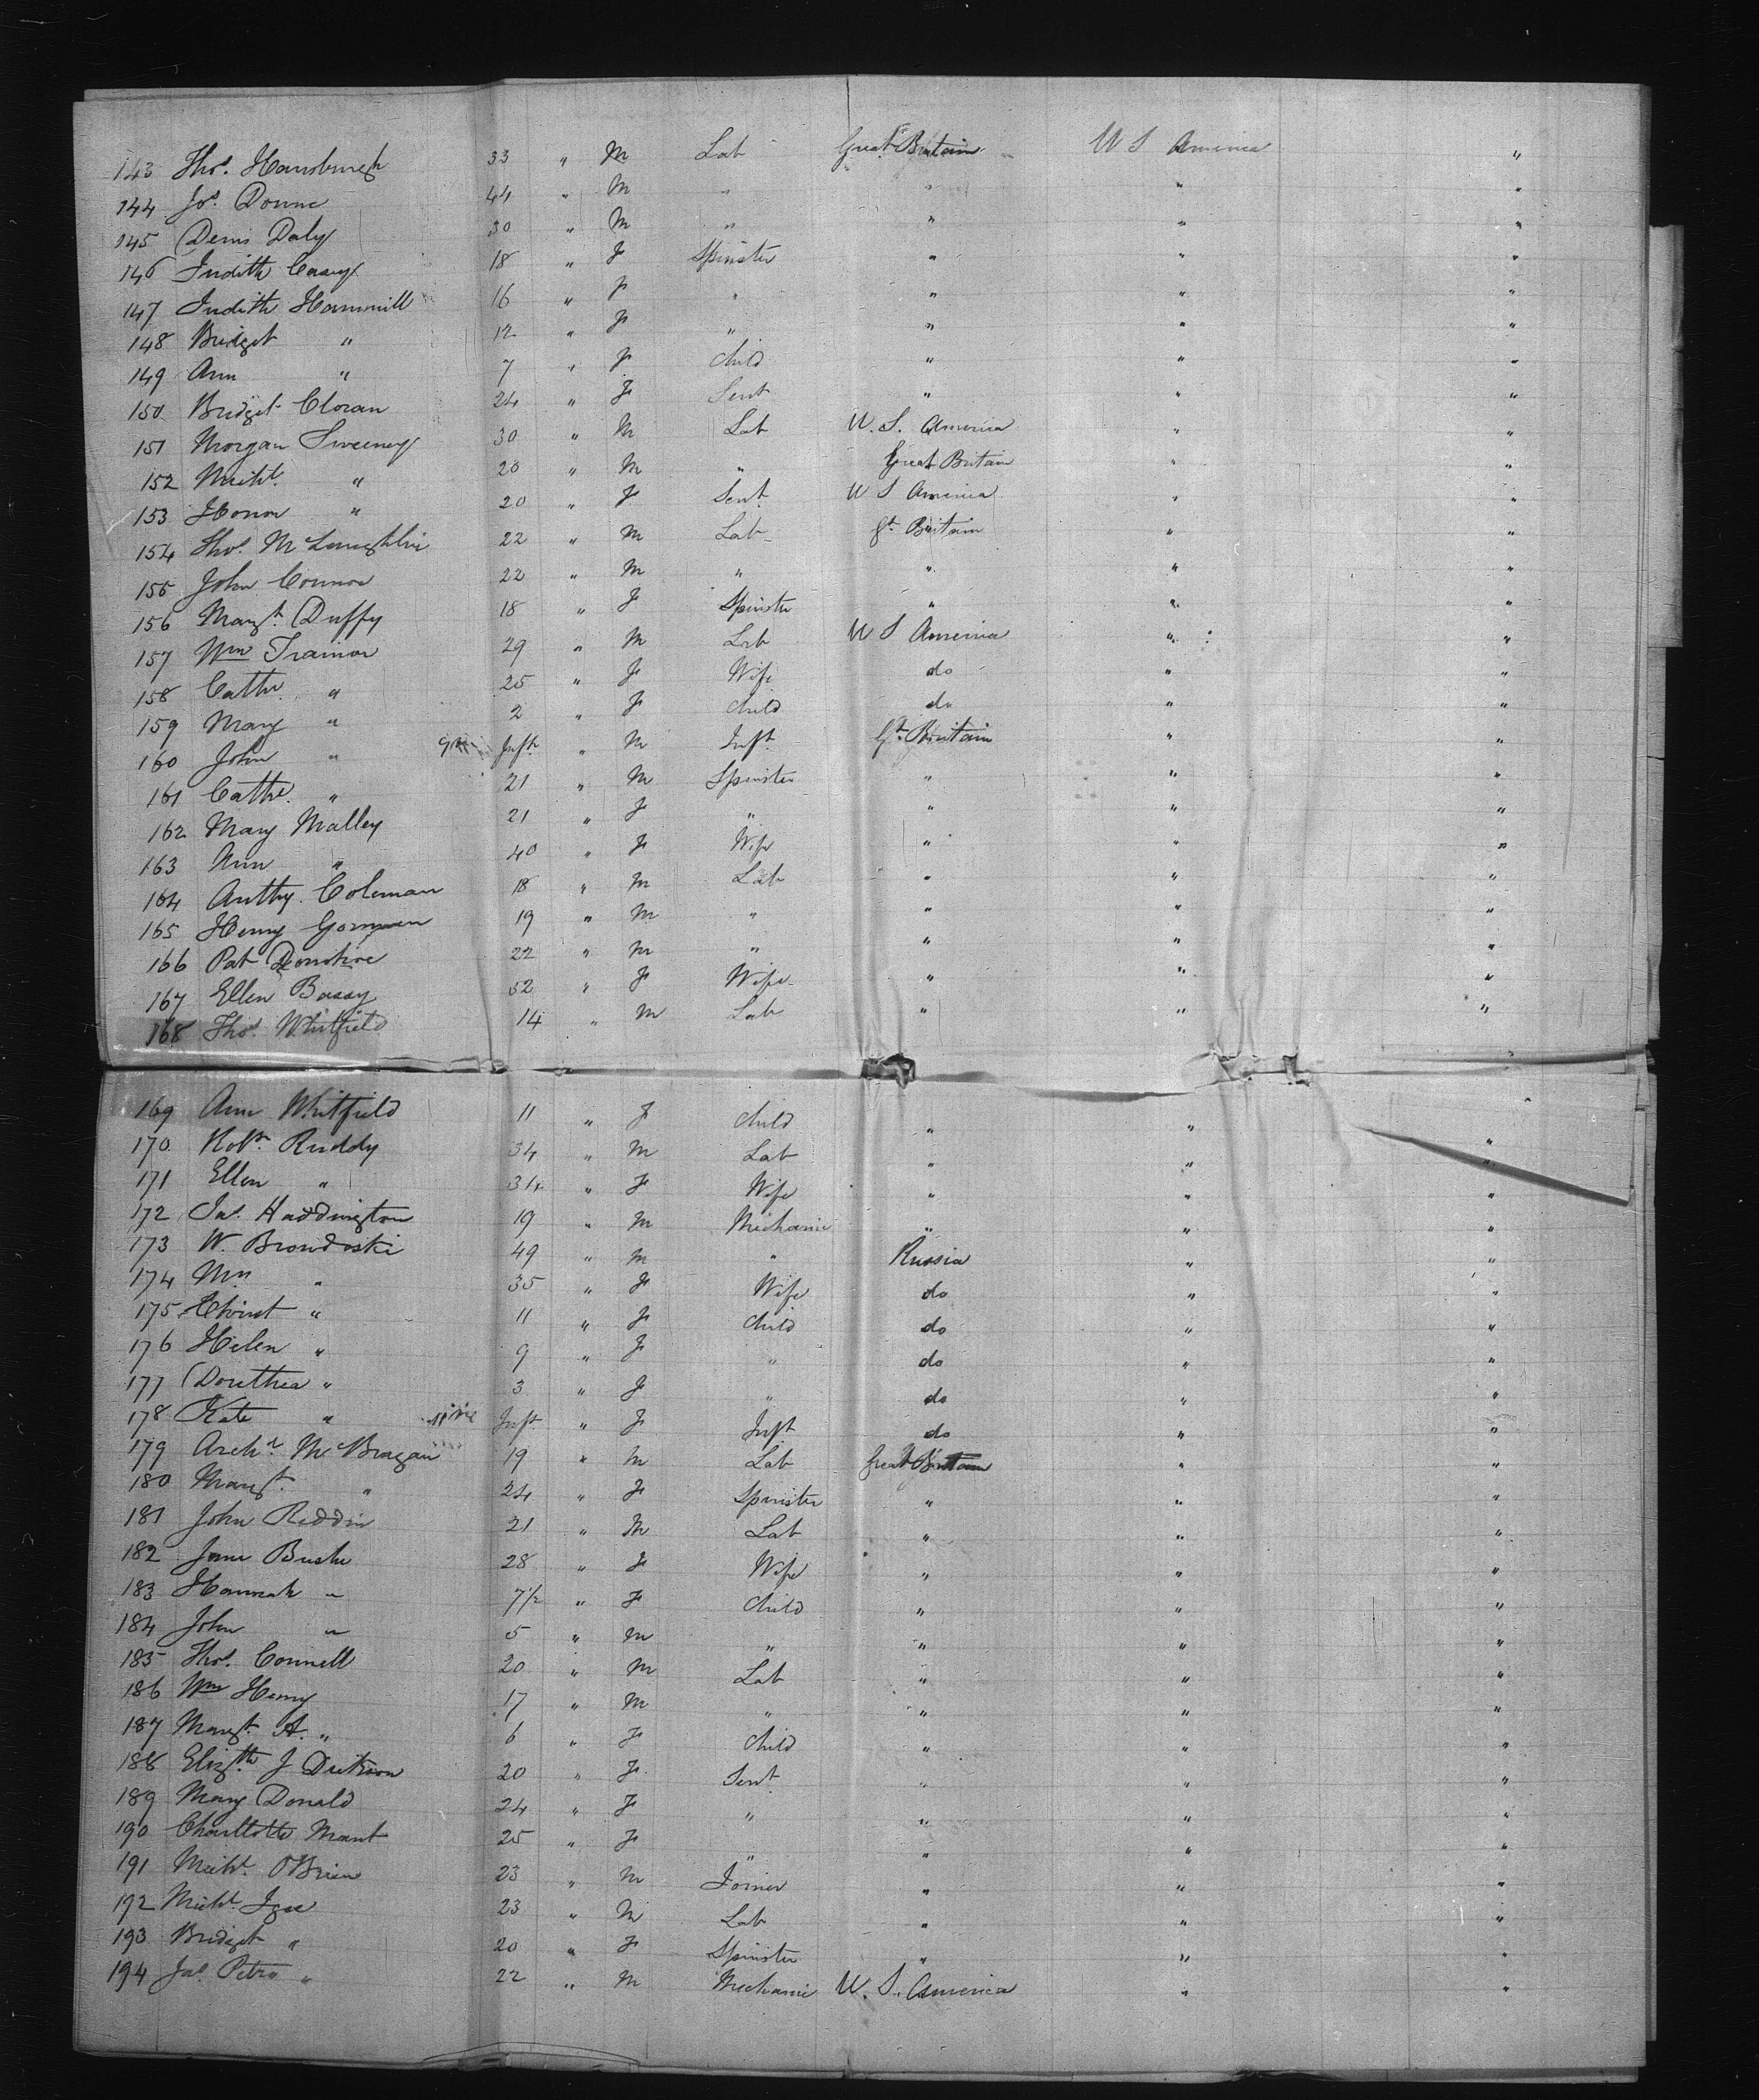 143 Thos. Hansburgh 33 " M Lab Great Britain W S America "
144 Jos. Donne 44 " M " " " "
145 Denis Daly 30 " M " " " "
146 Judith Casey 18 " F Spinster " " "
147 Judith Hammill 16 " F " " " "
148 Bridget " 12 " F " " " "
149 Ann " 7 " F Child " " "
150 Bridget Cloran 24 " F Servt " " "
151 Morgan Sweeney 30 " M Lab U. S. America " "
152 Michl. " 20 " M " Great Britain " "
153 Honor " 20 " F Servt U S America " "
154 Thos. McLaughlin 22 " M Lab Gt Britain " "
155 John Connor 22 " M " " " "
156 Margt. Duffy 18 " F Spinster " " "
157 Wm Trainor 29 " M Lab U S America " "
158 Cathe. " 25 " F Wife do " "
159 Mary " 2 " F Child do " "
160 John " Inft " M Inft Gt. Britain " "
161 Cathe. " 21 " M Spinster " " "
162 Mary Malley 21 " F " " " "
163 Ann " 40 " F Wife " " "
164 Anthy. Coleman 18 " M Lab " " "
165 Henry Gorman 19 " M " " " "
166 Pat 22 " M " " " "
167 Ellen 52 " F Wife " " "
168 Thos. Whitfield 14 " M Lab " " "
169 Ann Whitfield 11 " F Child " " "
170 Robt. Ruddy 34 " M Lab " " "
171 Ellen " 34 " F Wife " " "
172 Jas. Haddington 19 " M Mechanic " " "
173 W. Browdoski 49 " M " Russia " "
174 Mrs " 35 " F Wife do " "
175 Christ " 11 " F Child do " "
176 Helen " 9 " F " do " "
177 Dorethea " 3 " F " do " "
178 Kate " Inft " F Inft do " "
179 Archd. McBragan 19 " M Lab Great Britain " "
180 Margt. " 24 " F Spinster " " "
181 John Reddin 21 " M Lab " " "
182 Jane Bushe 28 " F Wife " " "
183 Hannah " 7½ " F Child " " "
184 John " 5 " M " " " "
185 Thos. Connell 20 " M Lab " " "
186 Wm Henry 17 " M " " " "
187 Margt. A. " 6 " F Child " " "
188 Elizth. J Dickson 20 " F Servt " " "
189 Mary Donald 24 " F " " " "
190 Charllotte Mant 25 " F " " " "
191 Michl. O'Brien 23 " M Joiner " " "
192 Michl. Igoe 23 " M Lab " " "
193 Bridget " 20 " F Spinster " " "
194 Jas. Petro " 22 " M Mechanic U. S. America " "